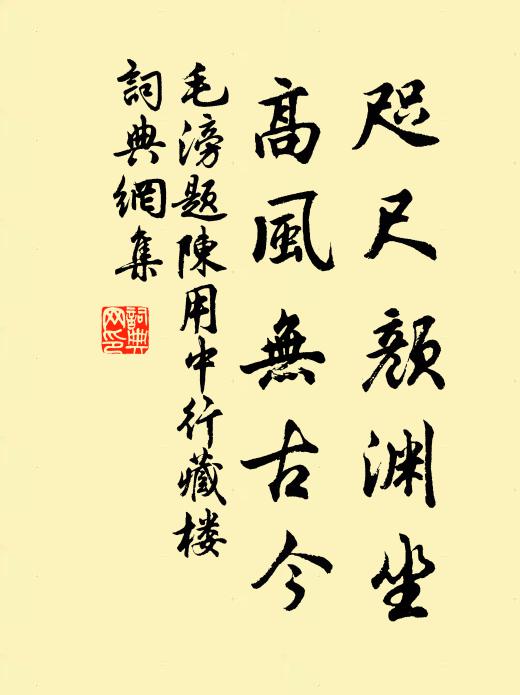 咫尺顔渊坐
高風無古今
毛滂題陳用中行藏楼
詞典網集
詞典网印